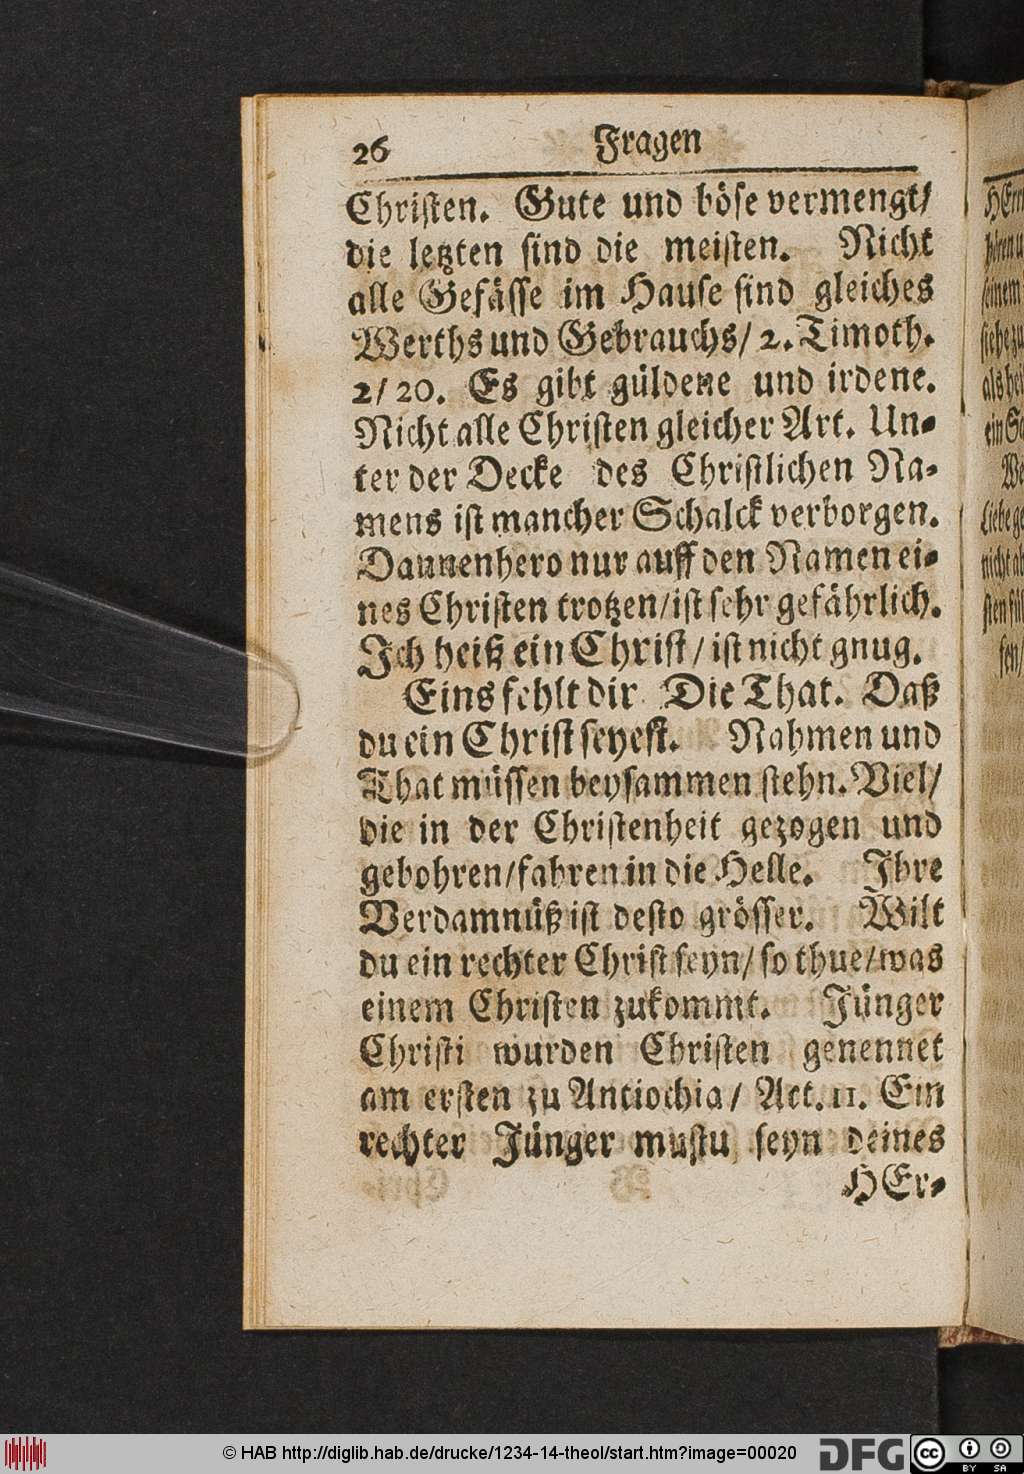 26 Fragen
Christen. Gute und böse vermengt/
die letzten sind die meisten. Nicht
alle Gefässe im Hause sind gleiches
Werths und Gebrauchs/ 2. Timoth.
2/ 20. Es gibt güldene und irdene.
Nicht alle Christen gleicher Art. Un-
ter der Decke des Christlichen Na-
mens ist mancher Schalck verborgen.
Dannenhero nur auff den Namen ei-
nes Christen trotzen/ ist sehr gefährlich.
Ich heiß ein Christ/ ist nicht gnug.
Eins fehlt dir Die That. Daß
du ein Christ seyest. Nahmen und
That müssen beysammen stehn. Viel/
die in der Christenheit gezogen und
gebohren/ fahren in die Helle. Ihre
Verdamnüß ist desto grösser. Wilt
du ein rechter Christ seyn/ so thue/ was
einem Christen zukommt. Jünger
Christi wurden Christen genennet
am ersten zu Antiochia/ Act. 11. Ein
rechter Jünger mustu seyn deines
HEr-
© HAB http://diglib.hab.de/drucke/1234-14-theol/start.htm?image=00020
DFG
cc BY SA